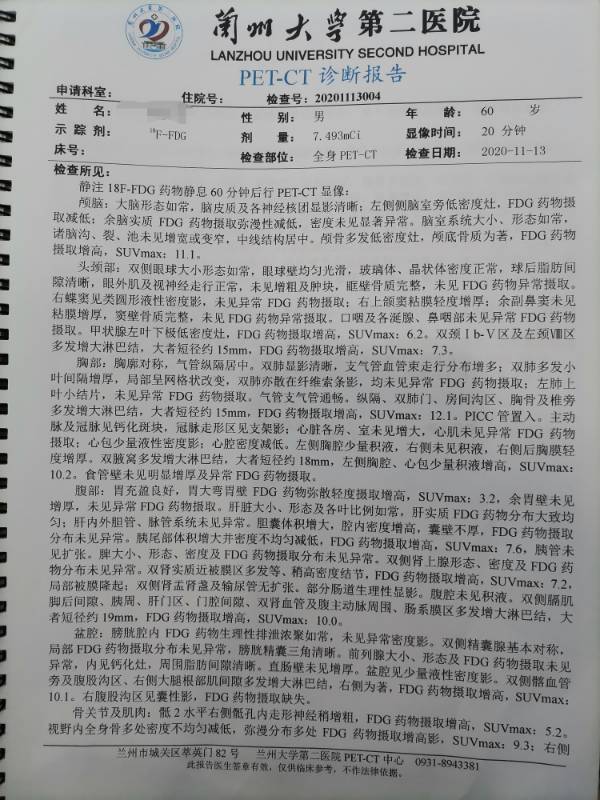 兰州大学第二医院
LANZHOU UNIVERSITY SECOND HOSPITAL
PET-CT 诊断报告
申请科室： 住院号： 检查号：20201113004
姓 名： 性 别：男 年 龄：60 岁
示 踪 剂：18F-FDG 剂 量：7.493mCi 显像时间：20 分钟
床号： 检查部位：全身 PET-CT 检查日期：2020-11-13
检查所见：
静注 18F-FDG 药物静息 60 分钟后行 PET-CT 显像：
颅脑：大脑形态如常，脑皮质及各神经核团显影清晰；左侧侧脑室旁低密度灶，FDG 药物摄
取减低；余脑实质 FDG 药物摄取弥漫性减低，密度未见显著异常。脑室系统大小、形态如常，
诸脑沟、裂、池未见增宽或变窄，中线结构居中。颅骨多发低密度灶，颅底骨质为著，FDG 药物
摄取增高，SUVmax：11.1。
头颈部：双侧眼球大小形态如常，眼球壁均匀光滑，玻璃体、晶状体密度正常，球后脂肪间
隙清晰，眼外肌及视神经走行正常，未见增粗及肿块，眶壁骨质完整，未见 FDG 药物异常摄取。
右蝶窦见类圆形液性密度影，未见异常 FDG 药物摄取；右上颌窦粘膜轻度增厚；余副鼻窦未见
粘膜增厚，窦壁骨质完整，未见 FDG 药物异常摄取。口咽及各涎腺、鼻咽部未见异常 FDG 药物
摄取。甲状腺左叶下极低密度灶，FDG 药物摄取增高，SUVmax：6.2。双颈Ⅰb-Ⅴ区及左颈Ⅷ区
多发增大淋巴结，大者短径约 15mm，FDG 药物摄取增高，SUVmax：7.3。
胸部：胸廓对称，气管纵隔居中。双肺显影清晰，支气管血管束走行分布增多；双肺多发小
叶间隔增厚，局部呈网格状改变，双肺亦散在纤维索条影，均未见异常 FDG 药物摄取；左肺上
叶小结片，未见异常 FDG 药物摄取。气管支气管通畅。纵隔、双肺门、房间沟区、胸骨及椎旁
多发增大淋巴结，大者短径约 15mm，FDG 药物摄取增高，SUVmax：12.1。PICC 管置入。主动
脉及冠脉见钙化斑块，冠脉走形区见支架影；心脏各房、室未见增大，心肌未见异常 FDG 药物
摄取；心包少量液性密度影；心腔密度减低。左侧胸腔少量积液，右侧未见积液，右侧后胸膜轻
度增厚。双腋窝多发增大淋巴结，大者短径约 18mm，左侧胸腔、心包少量积液增高，SUVmax：
10.2。食管壁未见明显增厚及异常 FDG 药物摄取。
腹部：胃充盈良好，胃大弯胃壁 FDG 药物弥散轻度摄取增高，SUVmax：3.2，余胃壁未见
增厚，未见异常 FDG 药物摄取。肝脏大小、形态及各叶比例如常，肝实质 FDG 药物分布大致均
匀；肝内外胆管、脉管系统未见异常。胆囊体积增大，腔内密度增高，囊壁不厚，FDG 药物摄取
分布未见异常。胰尾部体积增大并密度不均匀减低，FDG 药物摄取增高，SUVmax：7.6，胰管未
见扩张。脾大小、形态、密度及 FDG 药物摄取分布未见异常。双侧肾上腺形态、密度及 FDG 药
物分布未见异常。双肾实质近被膜区多发等、稍高密度结节，FDG 药物摄取增高，SUVmax：7.2，
局部被膜隆起；双侧肾盂肾盏及输尿管无扩张。部分肠道生理性显影。腹腔未见积液。双侧膈肌
脚后间隙、胰周、肝门区、门腔间隙、双肾血管及腹主动脉周围、肠系膜区多发增大淋巴结，大
者短径约 19mm，FDG 药物摄取增高，SUVmax：10.0。
盆腔：膀胱腔内 FDG 药物生理性排泄浓聚如常，未见异常密度影。双侧精囊腺基本对称，
局部 FDG 药物摄取分布未见异常，膀胱精囊三角清晰。前列腺大小、形态及 FDG 药物摄取未见
异常，内见钙化灶，周围脂肪间隙清晰。直肠壁未见增厚。盆腔见少量液性密度影。双侧髂血管
旁及腹股沟区、右侧大腿根部肌间隙多发增大淋巴结，右侧为著，FDG 药物摄取增高，SUVmax：
10.1。右腹股沟区见囊性影，FDG 药物摄取缺失。
骨关节及肌肉：骶 2 水平右侧骶孔内走形神经稍增粗，FDG 药物摄取增高，SUVmax：5.2。
视野内全身骨多处密度不均匀减低，弥漫分布多处 FDG 药物摄取增高影，SUVmax：9.3；右侧
兰州市城关区萃英门 82 号 兰州大学第二医院 PET-CT 中心 0931-8943381
此报告医生签章有效，仅供临床参考，不作法律依据。